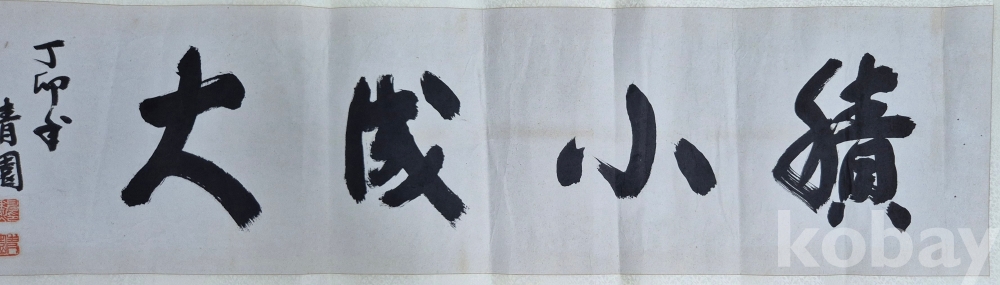 積小成大
丁卯冬
青園
kobay